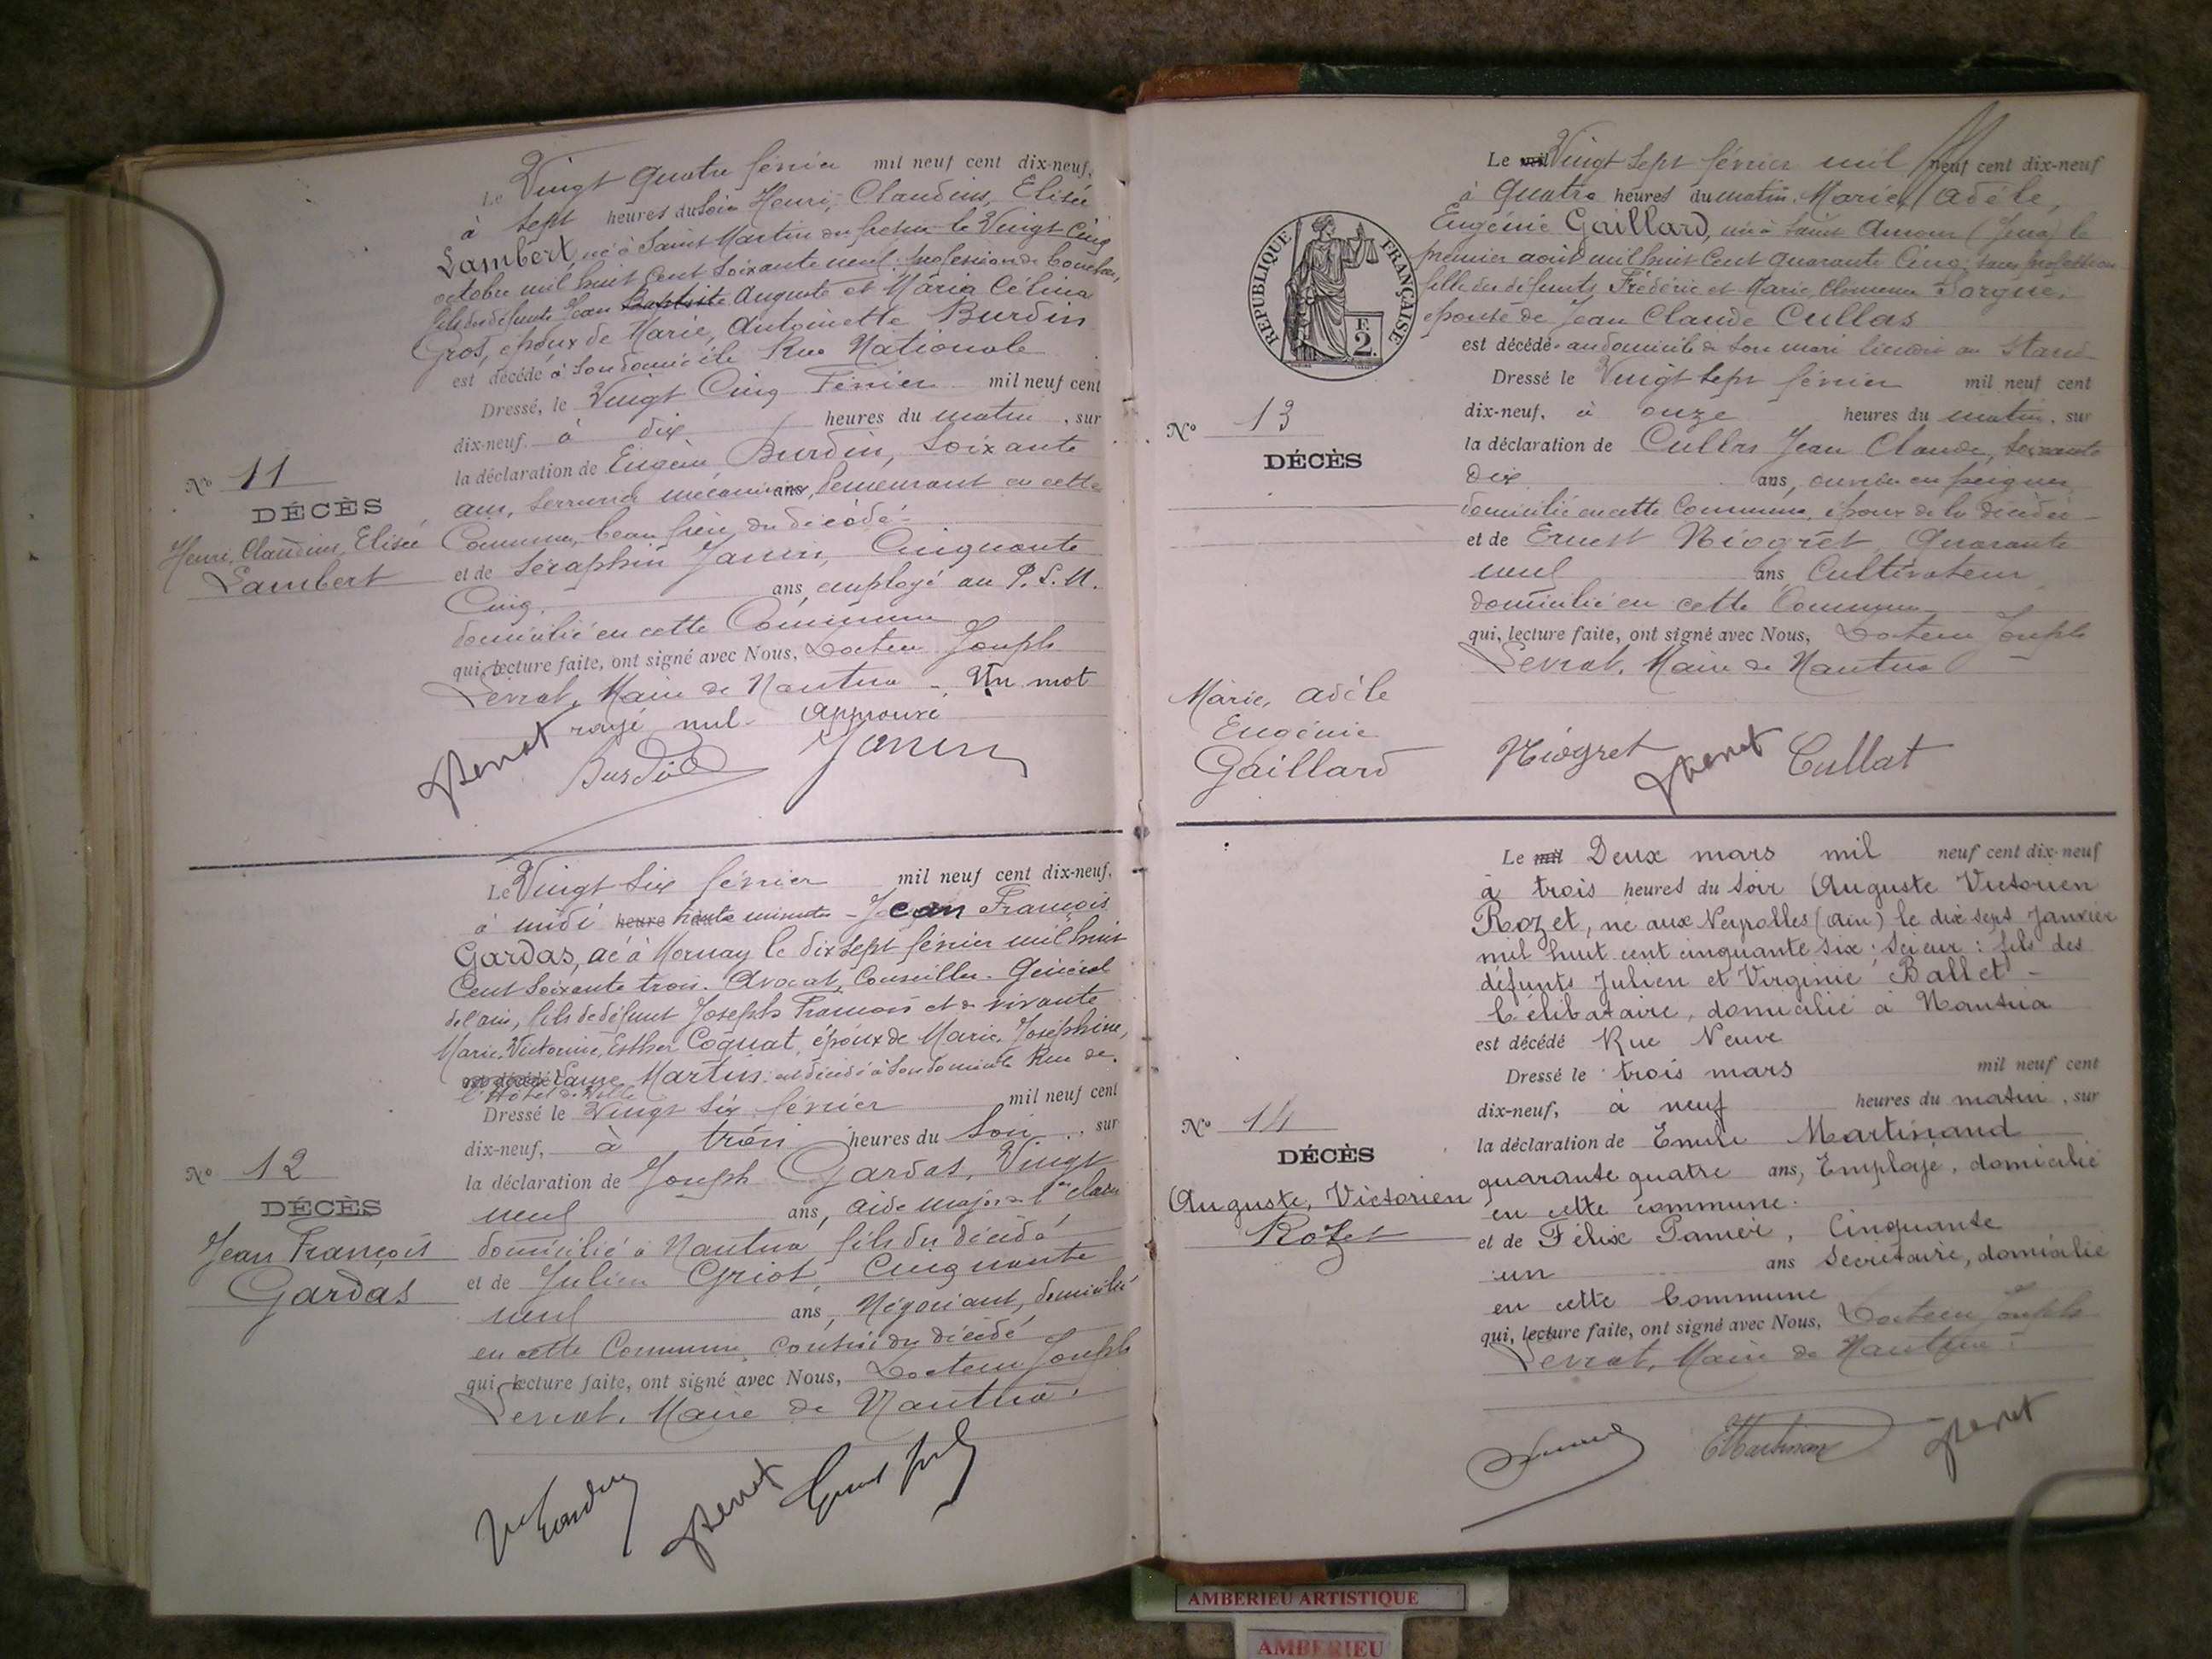 Le Vingt quatre février mil neuf cent dix-neuf,
à sept heures du soir Henri, Claudius, Elisée
Lambert, né à Saint Martin du fresne le Vingt Cinq
octobre mil huit Cent Soixante neuf, profession de boucher,
fils des défunts Jean Baptiste Auguste et Maria Célina
Gros, époux de Marie, Antoinette Burdin
est décédé à son domicile Rue Nationale
Dressé, le Vingt Cinq Février mil neuf cent
dix-neuf. à dix heures du matin, sur
la déclaration de Eugène Burdin, Soixante
ans, Serrurier mécanicien, demeurant en cette
Commune, beau frère du décédé
et de Séraphin Janin, Cinquante
Cinq ans, employé au P.L.M.
domicilié en cette Commune
qui, lecture faite, ont signé avec Nous, Docteur Joseph
Levrat, Maire de Nantua - Un mot
rayé nul. Approuvé
Burdin Janin
No 11
DÉCÈS
Henri, Claudius, Elisée
Lambert
Le Vingt Six février mil neuf cent dix-neuf,
à midi heure minutes - Jean François
Gardas, né à Mornay le dix sept février mil huit
Cent Soixante trois. Avocat, Conseiller Général
de l'ain, fils de défunt Joseph François et de vivante
Marie, Victorine, Esther Coquat, époux de Marie, Joséphine,
est décédé Martin. est décédé à son domicile Rue de
l'Hôtel de Ville
Dressé le Vingt Six février mil neuf cent
dix-neuf, à trois heures du Soir, sur
la déclaration de Joseph Gardas, Vingt
neuf ans, aide major de 1ère classe
domicilié à Nantua, fils du décédé
et de Julien Griot, Cinquante
neuf ans, Négociant, domicilié
en cette Commune, cousin du décédé
qui, lecture faite, ont signé avec Nous, Docteur Joseph
Levrat, Maire de Nantua.
No 12
DÉCÈS
Jean François
Gardas
Le mil Vingt Sept février mil neuf cent dix-neuf
à Quatre heures du matin, Marie, Adèle,
Eugénie Gaillard, née à Saint Amour (Jura) le
premier août mil huit Cent quarante Cinq, sans profession
fille des défunts Frédéric et Marie, Clémence Dorgue,
épouse de Jean Claude Cullas
est décédée au domicile de son mari lieudit au Stand
Dressé le Vingt Sept février mil neuf cent
dix-neuf, à onze heures du matin, sur
la déclaration de Cullas Jean Claude, soixante
dix ans, ouvrier en peignes
domicilié en cette Commune, époux de la décédée
et de Ernest Niogret, Quarante
neuf ans, Cultivateur
domicilié en cette Commune
qui, lecture faite, ont signé avec Nous, Docteur Joseph
Levrat, Maire de Nantua
Niogret Cullat
REPUBLIQUE FRANÇAISE
F.
2.
No 13
DÉCÈS
Marie, Adèle
Eugénie
Gaillard
Le mil Deux mars mil neuf cent dix-neuf
à trois heures du Soir Auguste Victorien
Rozet, né aux Neyrolles (Ain) le dix sept Janvier
mil huit cent cinquante six; Scieur: fils des
défunts Julien et Virginie Ballet -
Célibataire, domicilié à Nantua
est décédé Rue Neuve
Dressé le trois mars mil neuf cent
dix-neuf, à neuf heures du matin, sur
la déclaration de Emile Martinand
quarante quatre ans, Employé, domicilié
en cette commune.
et de Félix Pamée, Cinquante
un ans Secrétaire, domicilié
en cette Commune
qui, lecture faite, ont signé avec Nous, Docteur Joseph
Levrat, Maire de Nantua.
EMartinand
No 14
DÉCÈS
Auguste, Victorien
Rozet
AMBERIEU ARTISTIQUE
AMBERIEU